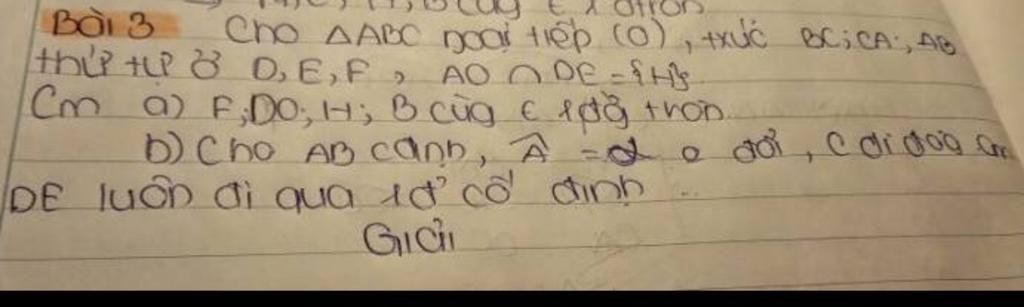 Bài 3 Cho ΔABC ngoại tiếp (O), txúc BC; CA; AB
thứ tự ở D, E, F, AO ∩ DE = {H}
Cm a) F; D; O; H; B cùng ∈ 1 đg tròn
b) Cho AB cđịnh, Â = α o đổi, C di động Cm
DE luôn đi qua 1 đ' cố định
Giải